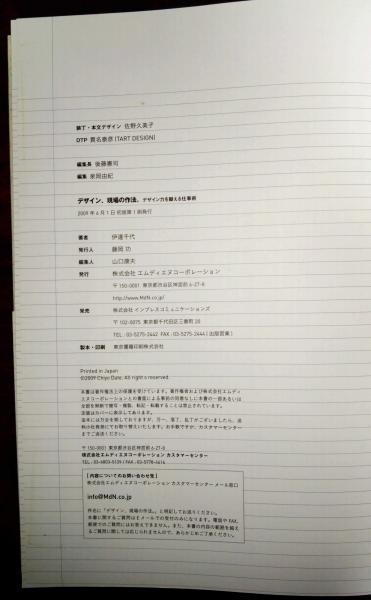 装丁・本文デザイン 佐野久美子
DTP 貫名泰彦(TART DESIGN)
編集長 後藤憲司
編集 泉岡由紀
デザイン、現場の作法。デザイン力を鍛える仕事術
2009年6月1日 初版第1刷発行
著者 伊達千代
発行人 藤岡 功
編集人 山口康夫
発行 株式会社 エムディエヌコーポレーション
〒150-0001 東京都渋谷区神宮前 6-27-8
http://www.MdN.co.jp/
発売 株式会社 インプレスコミュニケーションズ
〒102-0075 東京都千代田区三番町20
TEL:03-5275-2442 FAX:03-5275-2444(出版営業)
製本・印刷 東京書籍印刷株式会社
Printed in Japan
©2009 Chiyo Date. All right s reserved.
本書は著作権法上の保護を受けています。著作権者および株式会社エムディ
エヌコーポレーションとの書面による事前の同意なしに本書の一部あるいは
全部を無断で複写・複製、転記・転載することは禁止されています。
定価はカバーに表示してあります。
造本には万全を期しておりますが、万一、落丁、乱丁がございましたら、送
料小社負担にてお取り替えいたします。お手数ですが、カスタマーセンター
までご返送ください。
〒150-0001 東京都渋谷区神宮前 6-27-8
株式会社エムディエヌコーポレーション カスタマーセンター
TEL:03-4803-5139 / FAX:03-5778-4616
[内容についてのお問い合わせ先]
株式会社エムディエヌコーポレーション カスタマーセンター メール窓口
info@MdN.co.jp
件名に「デザイン、現場の作法。」と明記してお送りください。
本書に関するご質問はEメールでの受付のみになります。電話やFAX、
郵便でのご質問にはお答えできません。また、本書の内容の範囲を超え
るご質問に関しては応じられませんので、あらかじめご了承ください。